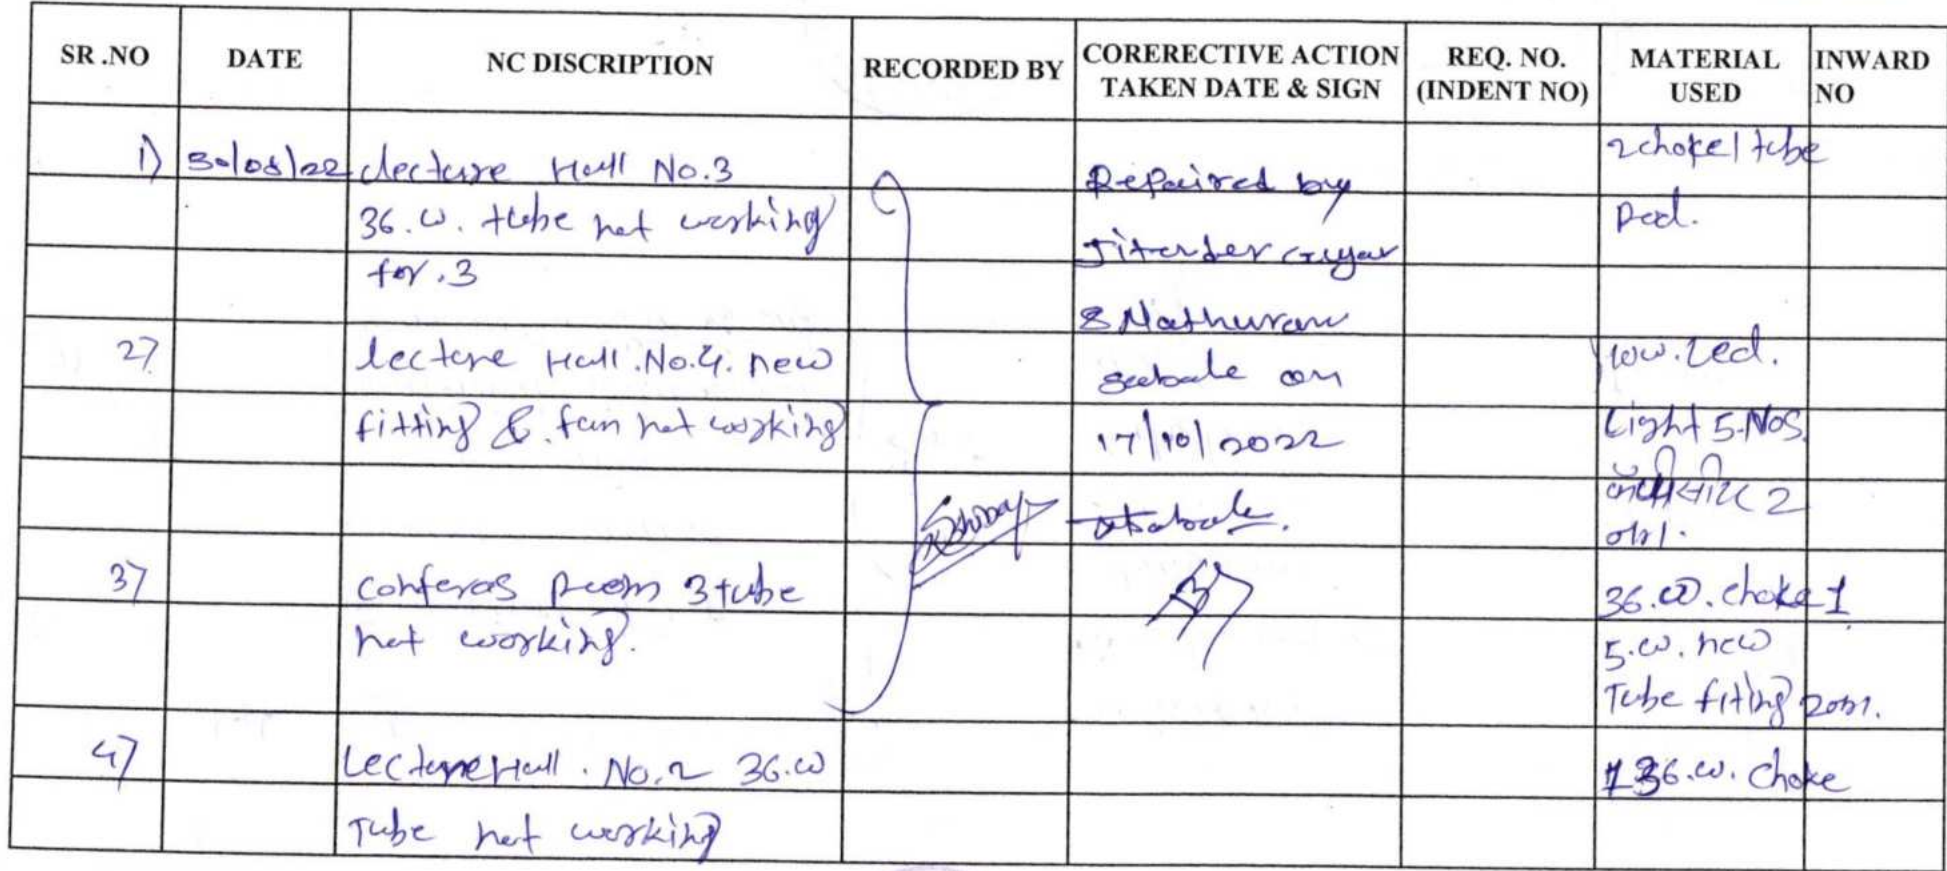 SR .NO DATE NC DISCRIPTION RECORDED BY CORERECTIVE ACTION TAKEN DATE & SIGN REQ. NO. (INDENT NO) MATERIAL USED INWARD NO
1) 30/08/22 Lecture Hall No.3
36.w. tube not working
for .3
Repaired by
Jitender Gujar
& Mathuram
sabale on
17/10/2022
2 choke 1 tube
2) lecture Hall .No.4. new
fitting & fan not working
10w. Led.
Light 5-NOS.
2
3) conferas Room 3 tube
not working.
36.w. choke 1
5.w. new
Tube fiting
4) Lecture Hall . No.2 36.w
Tube not working
36.w. choke